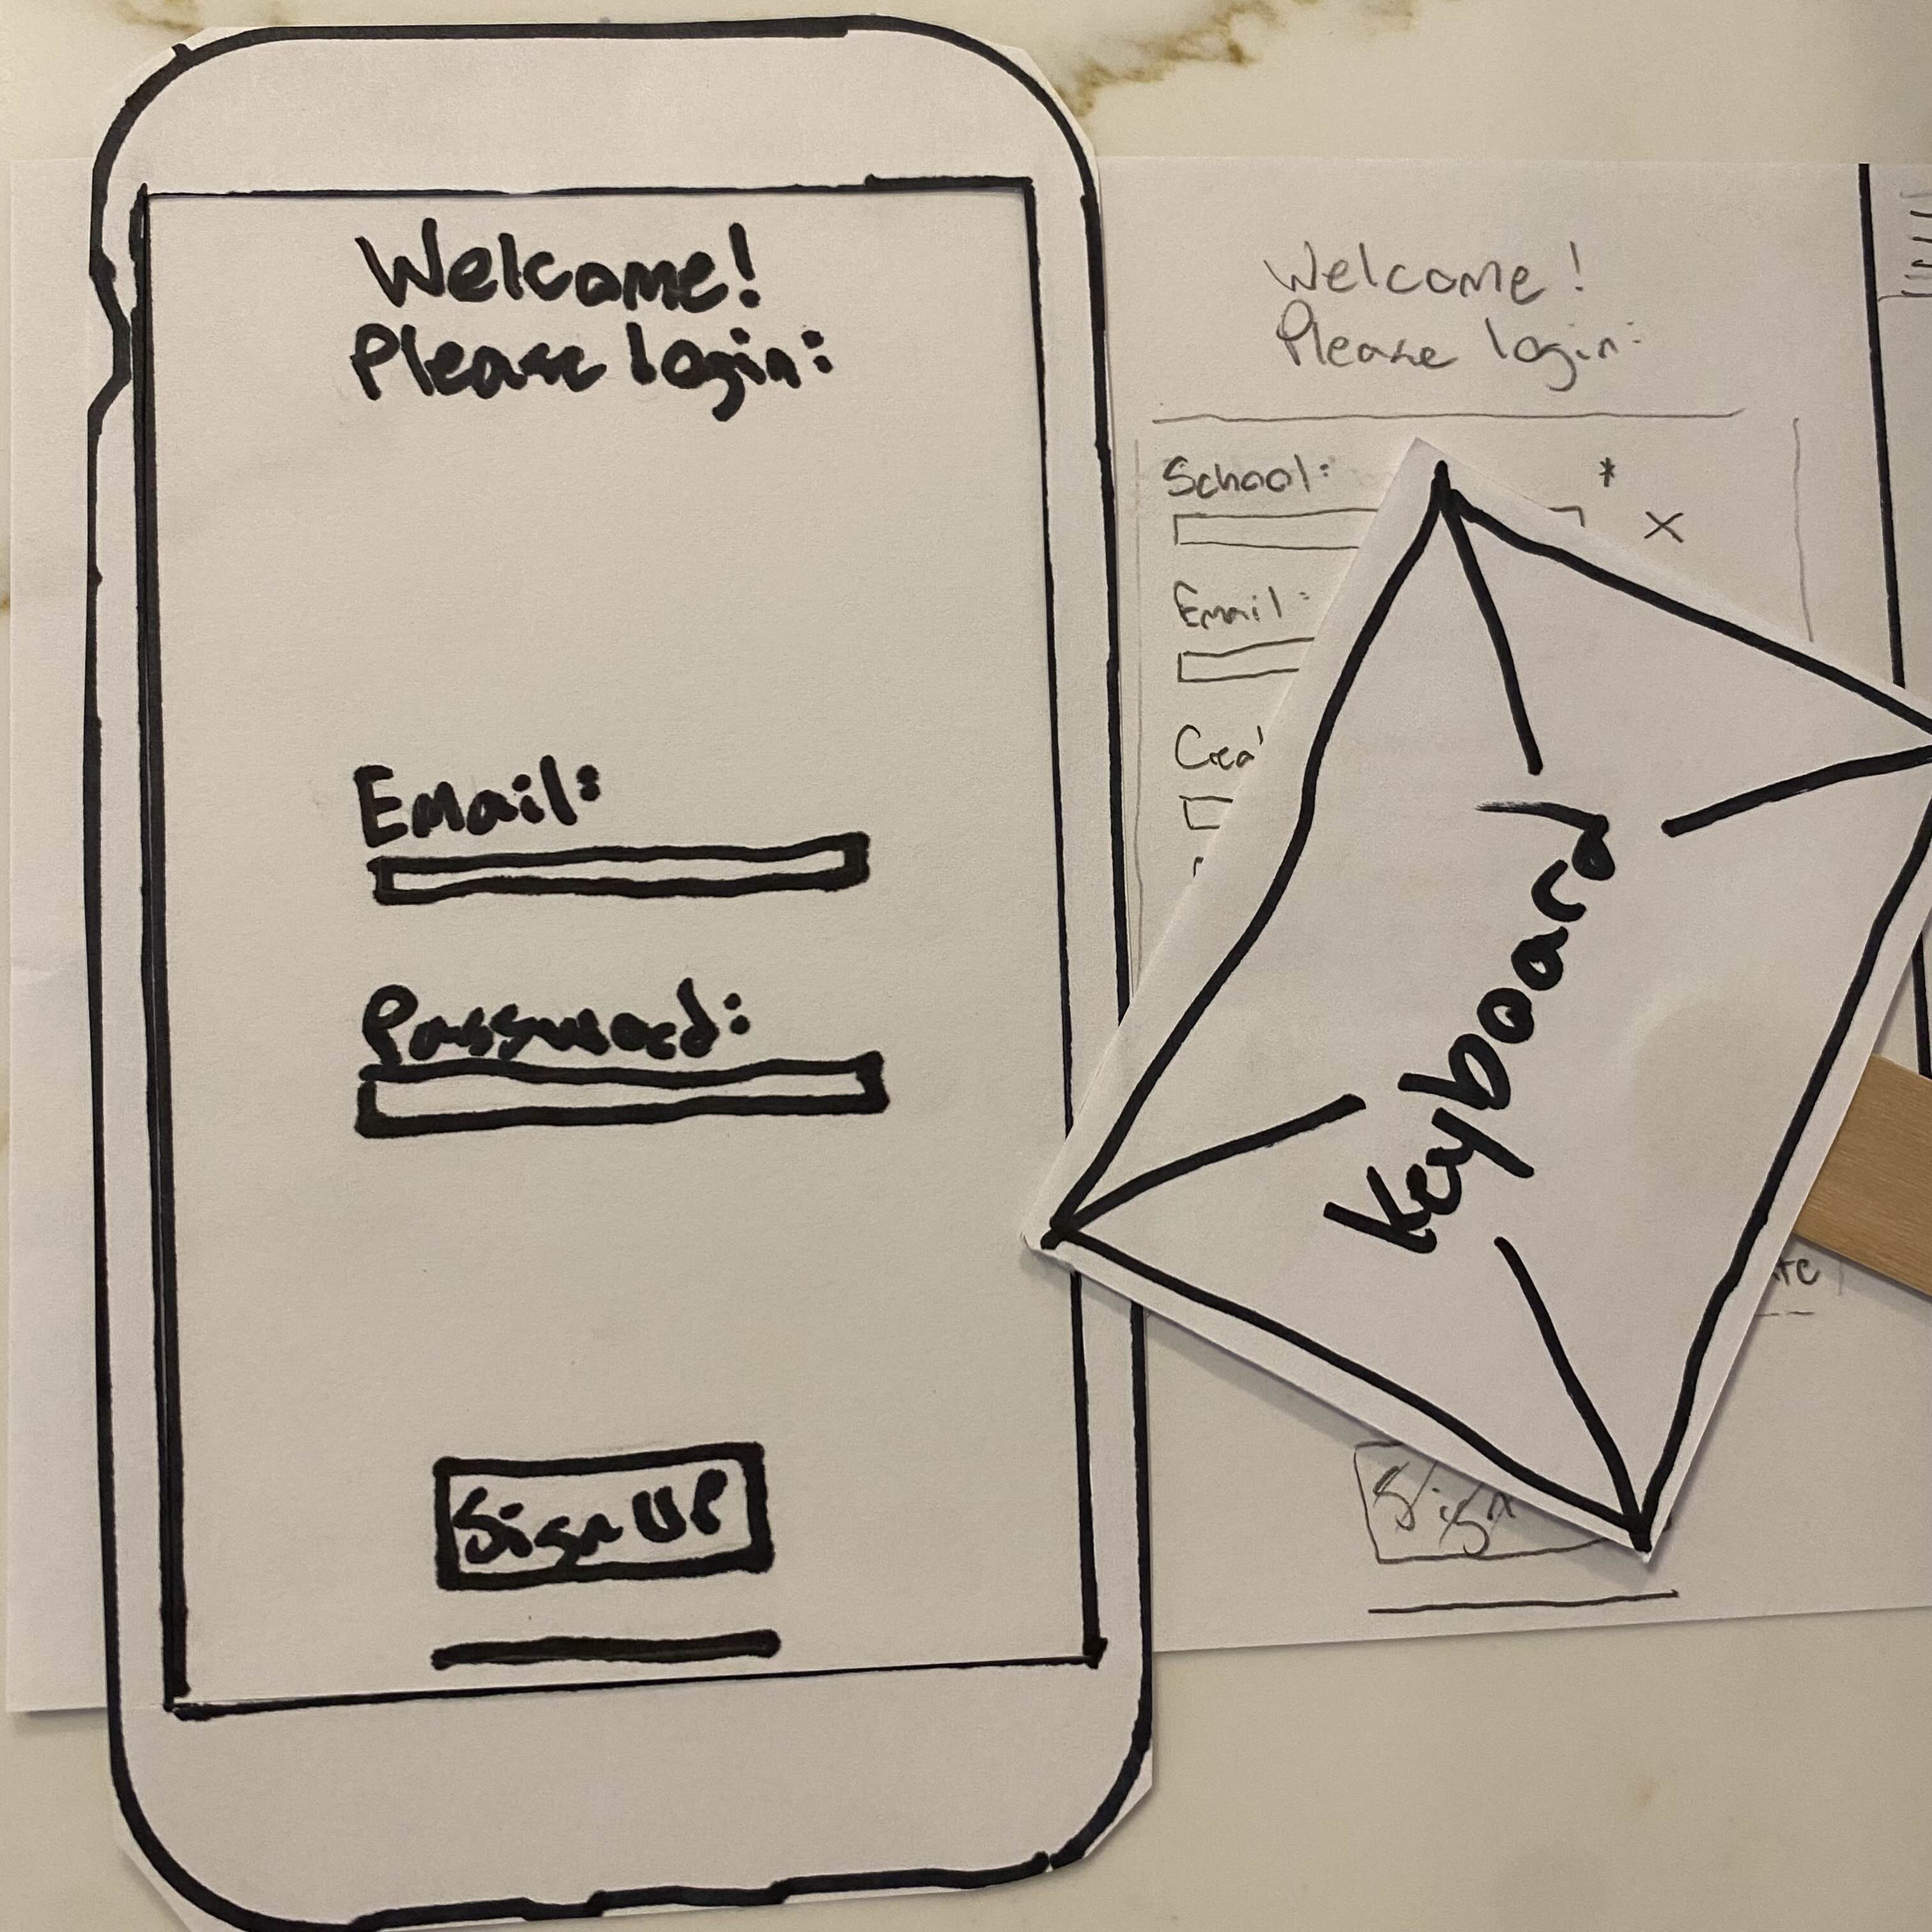 Welcome!
Please login:
Email:
Password:
Sign UP
Welcome!
Please login:
School: *
X
Email:
Keyboard
Sign